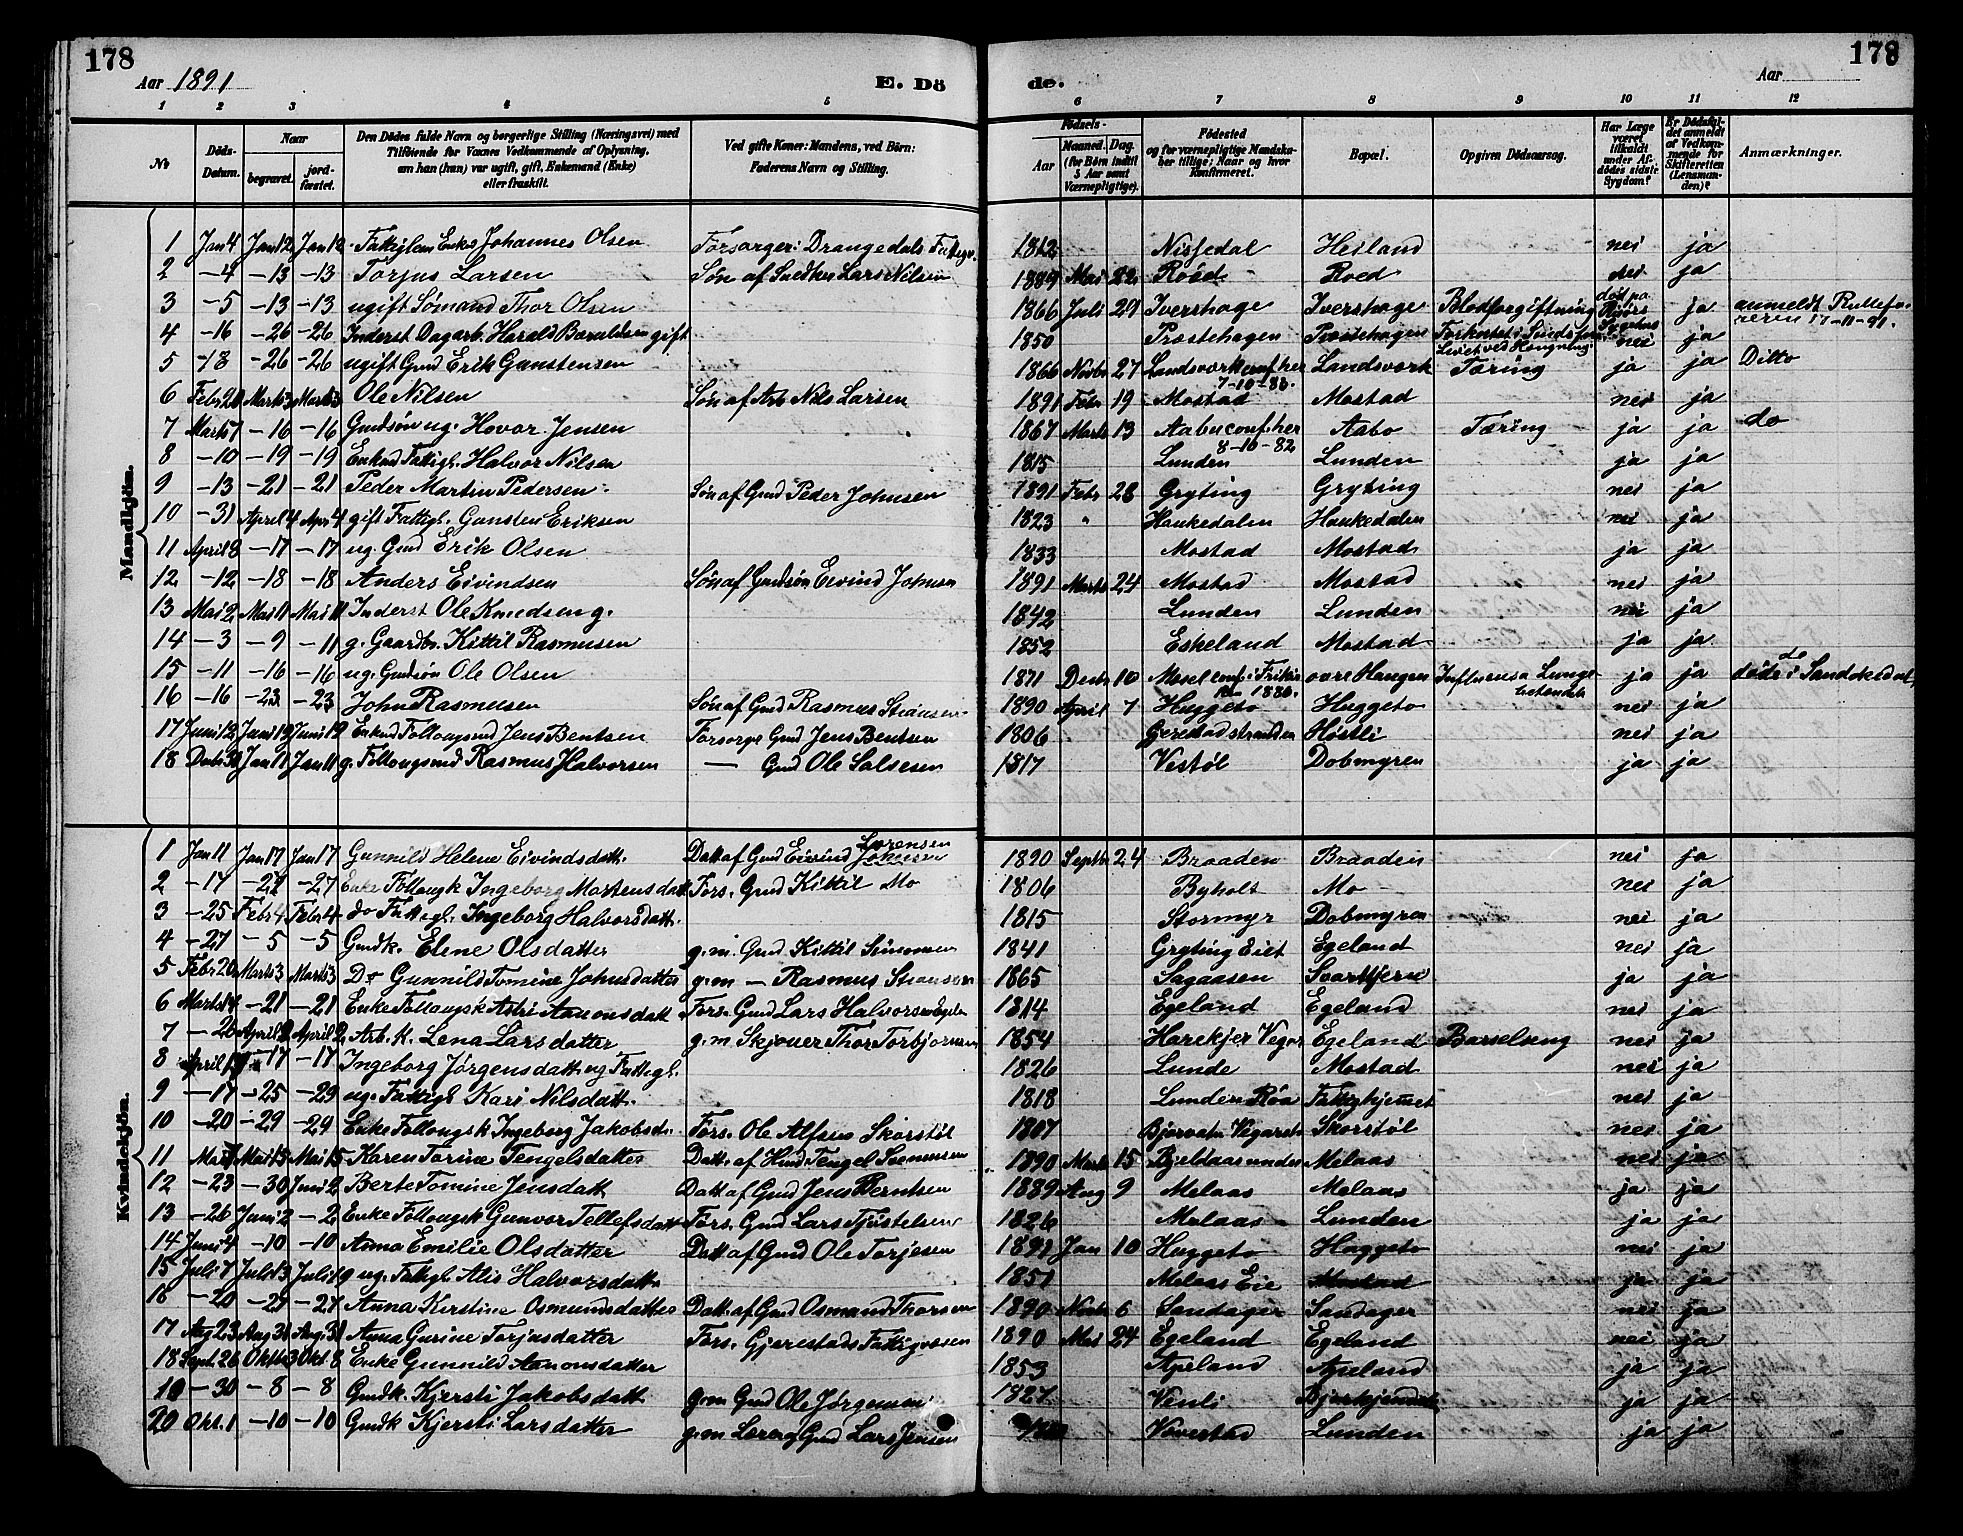 178
178
Aar 1891
E. Dö
de.
Aar
1 2 3 4 5 6 7 8 9 10 11 12
No
Döds-Datum.
Naar
begravet.
jordfæstet.
Den Dödes fulde Navn og borgerlige Stilling (Næringsvei) med Tilföiende for Voxnes Vedkommende af Oplysning, om han (hun) var ugift, gift, Enkemand (Enke) eller fraskilt.
Ved gifte Koner: Mandens, ved Börn: Faderens Navn og Stilling.
Födsels-
Aar
Maaned. Dag.
(for Börn indtil 5 Aar samt Værnepligtige).
Födested og for værnepligtige Mandskaber tillige: Naar og hvor Konfirmeret.
Bopæl.
Opgiven Dödsaarsag.
Har Læge været tilkaldt under Afdödes sidste Sygdom?
Er Dödsfaldet anmeldt af Vedkommende for Skifteretten (Lensmanden)?
Anmærkninger.
Mandkjön.
1 Jan 4 Jan 12 Jan 12 Fattiglem Enkm Johannes Olsen Forsørger: Drangedals Fattigv. 1812 Nissedal Heiland nei ja
2 – 4 – 13 – 13 Torjus Larsen Søn af Snedker Lars Nilsen 1889 Mai 22 Roed Roed nei ja
3 – 5 – 13 – 13 ugift Sømand Thor Olsen 1866 Juli 29 Ivershage Ivershage Blodforgiftning død paa Sygehus ja anmeldt Rulleføreren 17-11-91.
4 – 16 – 26 – 26 Inderst Dagarb. Harald gift 1850 Præstehagen Præstehagen Livet ved Hængning nei ja
5 – 18 – 26 – 26 ugift Gmd Erik Gunstensen 1866 Novbr 27 Landsværk conf. her 7-10-83. Landsværk Tæring ja ja Ditto
6 Febr Marts 3 Marts 3 Ole Nilsen Søn af Arb Nils Larsen 1891 Febr 19 Mostad Mostad nei ja
7 Marts 7 – 16 – 16 Gmdsøn ug. Hovor Jensen 1867 Marts 13 Aabu conf. her 8-10-82 Aabo Tæring ja ja do
8 – 10 – 19 – 19 Enkmd Fattigl. Halvor Nilsen 1815 Lunden Lunden ja ja
9 – 13 – 21 – 21 Peder Martin Pedersen Søn af Gmd Peder Johnsen 1891 Febr 28 Gryting Gryting nei ja
10 – 31 April 4 Apr 4 gift Fattigl. Gunsten Eriksen 1823 " Haukedalen Haukedalen nei ja
11 April 8 – 17 – 17 ug. Gmd Erik Olsen 1833 Mostad Mostad ja ja
12 – 12 – 18 – 18 Anders Eivindsen Søn af Gmdsøn Eivind Johnsen 1891 Marts 24 Mostad Mostad nei ja
13 Mai 2 Mai 11 Mai 11 Inderst Ole Knudsen g. 1842 Lunden Lunden nei ja
14 – 3 – 9 – 11 g. Gaardbr. Kittil Rasmusen 1852 Eskeland Mostad ja ja
15 – 11 – 16 – 16 ug. Gmdsøn Ole Olsen 1871 Decbr 10 conf. i 1886. øvre Haugen Influensa Lungebetændelse ja ja do døde i Sandøkedal
16 – 16 – 23 – 23 John Rasmusen Søn af Gmd Rasmus 1890 April 7 Huggeto Huggeto nei ja
17 Juni 12 Juni 19 Juni 19 Enkmd Føllougsmd Jens Bentsen Forsørge Gmd Jens Bentsen 1806 Gjerestadstranden Høstli nei ja
18 Decbr 30 Jan 11 Jan 11 g. Føllougsmd Rasmus Halvorsen — Gmd Ole Salvesen 1817 Vestøl Dobmyren ja ja
Kvindekjön.
1 Jan 11 Jan 17 Jan 17 Gunnild Helene Eivindsdatt. Datt af Gmd Eivind Sørensen Johnsen 1890 Septbr 24 Braaden Braaden nei ja
2 – 17 – 27 – 27 Enke Føllougsk Ingeborg Mortensdatt Fors. Gmd Kittil Mo 1806 Byholt Mo nei ja
3 – 25 Febr 4 Febr 4 do Fattigl. Ingeborg Halvorsdatt. 1815 Stormyr Dobmyren nei ja
4 – 27 – 5 – 5 Gmdk. Elene Olsdatter g. m. Gmd Kittil Simonsen 1841 Gryting Eiet Egeland nei ja
5 Febr 20 Marts 3 Marts 3 Do Gunnild Tomine Johnsdatter g. m – Rasmus 1865 Sagaasen Svarttjern ja ja
6 Marts 14 – 21 – 21 Enke Føllougsk Astri Aanonsdatt Fors. Gmd Lars Halvorsen Egeln 1814 Egeland Egeland nei ja
7 – 26 April 2 April 2 Arb. k. Lena Larsdatter g. m. Thor Torbjørnsen 1854 Harekjer Veg Egeland Barselseng nei ja
8 April – 17 – 17 Ingeborg Jørgensdatt. ug Fattigl. 1826 Lunde Mostad nei ja
9 – 17 – 25 – 29 ug. Fattigl Kari Nilsdatt. 1818 Lunden Røa Fattighjemet nei ja
10 – 20 – 29 – 29 Enke Føllougsk Ingeborg Jakobsd. Fors. Ole Alfsen Skorstøl 1807 Bjorvatn Vegarsh Skorstøl nei ja
11 Mai Mai 15 Mai 15 Karen Torine Tengelsdatter Datt. af Hmd Tengel 1890 Marts 15 Melaas nei ja
12 – 23 – 30 Juni 2 Berte Tomine Jensdatt Datt af Gmd Jens Berntsen 1889 Aug 9 Melaas Melaas ja ja
13 – 26 Juni 2 – 2 Enke Føllougsk Gunvor Tellefsdatt Fors. Gmd Lars Tjøstelsen 1826 Melaas Lunden ja ja
14 Juni 4 – 10 – 10 Anna Emilie Olsdatter Datt af Gmd Ole Torjesen 1891 Jan 10 Huggeto Huggeto nei ja
15 Juli 7 Juli 13 Juli 19 ug. Fattigl Alis Halvorsdatt. 1851 Melaas Eie Mostad ja ja
16 – 20 – 27 – 27 Anna Kirstine Osmundsdatter Datt. af Gmd Osmund Thorsen 1890 Novbr 6 Sandager Sandager nei ja
17 Aug 23 Aug 31 Aug 31 Anna Gurine Torjusdatter Fors. Gjerestads Fattigvæsen 1890 Mai 24 Egeland Egeland nei ja
18 Sept 26 Oktbr 3 Okt. 8 Enke Gunnild Aanonsdatter 1853 Apeland Apeland ja ja
19 – 30 – 8 – 8 Gmdk. Kjersti Jakobsdatt g. m Gmd Ole Jørgensen 1827 Venli ja ja
20 Okt. 1 – 10 – 10 Gmdk Kjersti Larsdatter g. m Lærer og Gmd Lars Jensen Vævestad Lunden ja ja